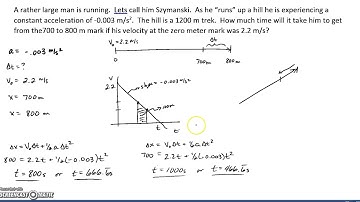 A rather large man is running. Lets call him Szymanski. As he “runs” up a hill he is experiencing a
constant acceleration of -0.003 m/s². The hill is a 1200 m trek. How much time will it take him to get
from the700 to 800 m mark if his velocity at the zero meter mark was 2.2 m/s?
a = -.003 m/s²
Δt = ?
V₀ = 2.2 m/s
x = 700m
x = 800 m
V₀=2.2 m/s
Δt
0
700m
800m
V
2.2
slope = -0.003 m/s²
100m
t
t
Δx = V₀Δt + ½ a Δt²
800 = 2.2t + ½(-0.003)t²
t = 800s or t = 666.6̅s
Δx = V₀Δt + ½ a Δt²
700 = 2.2t + ½(-0.003)t²
t = 1000s or t = 466.6̅s
SCREENCAST-O-MATIC